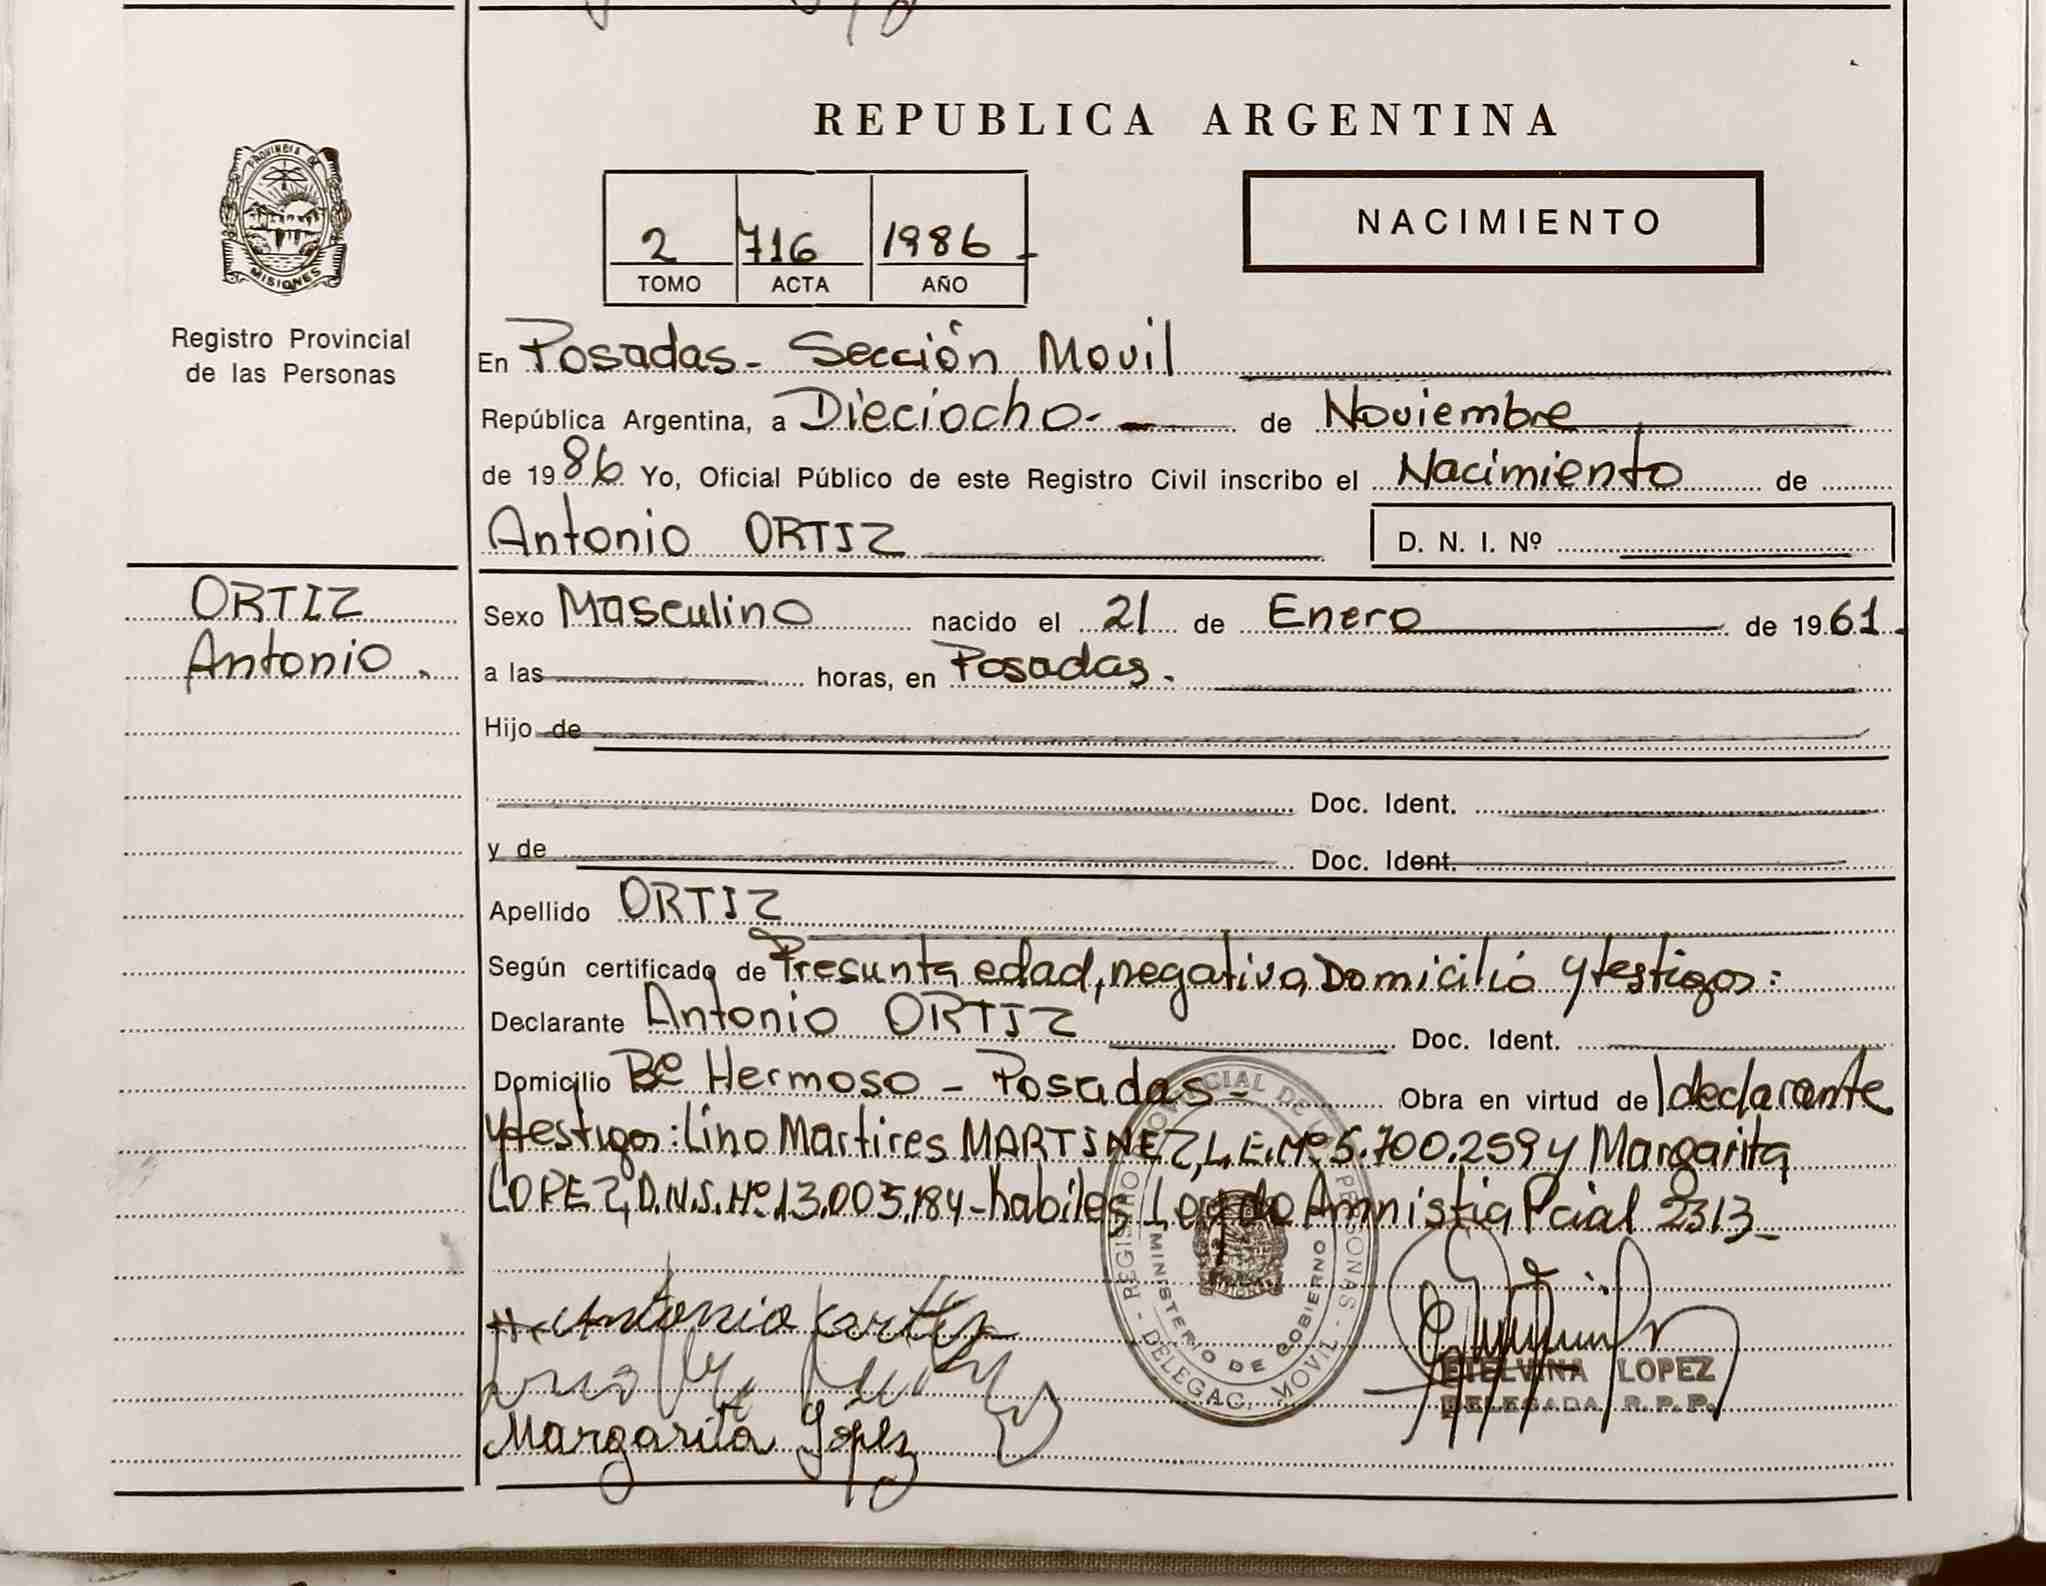 REPUBLICA ARGENTINA
PROVINCIA DE
MISIONES
Registro Provincial
de las Personas
2 716 1986
TOMO ACTA AÑO
NACIMIENTO
En Posadas - Sección Movil
República Argentina, a Dieciocho - de Noviembre
de 1986 Yo, Oficial Público de este Registro Civil inscribo el Nacimiento de
Antonio ORTIZ D. N. I. Nº
ORTIZ
Antonio.
Sexo Masculino nacido el 21 de Enero de 1961.
a las horas, en Posadas.
Hijo de
Doc. Ident.
y de Doc. Ident.
Apellido ORTIZ
Según certificado de Presunta edad, negativa, Domicilio y testigos:
Declarante Antonio ORTIZ Doc. Ident.
Domicilio Bº Hermoso - Posadas - Obra en virtud de declarante
y testigos: Lino Martires MARTINEZ, L.E.Nº 5.700.259 y Margarita
LOPEZ, D.N.I. Nº 13.005.184 - habiles Ley de Amnistia Pcial 2313 -
REGISTRO PROVINCIAL DE LAS PERSONAS - DELEGAC. MOVIL -
MINISTERIO DE GOBIERNO
Antonio
ETELVINA LOPEZ
DELEGADA R.P.P.
Margarita López